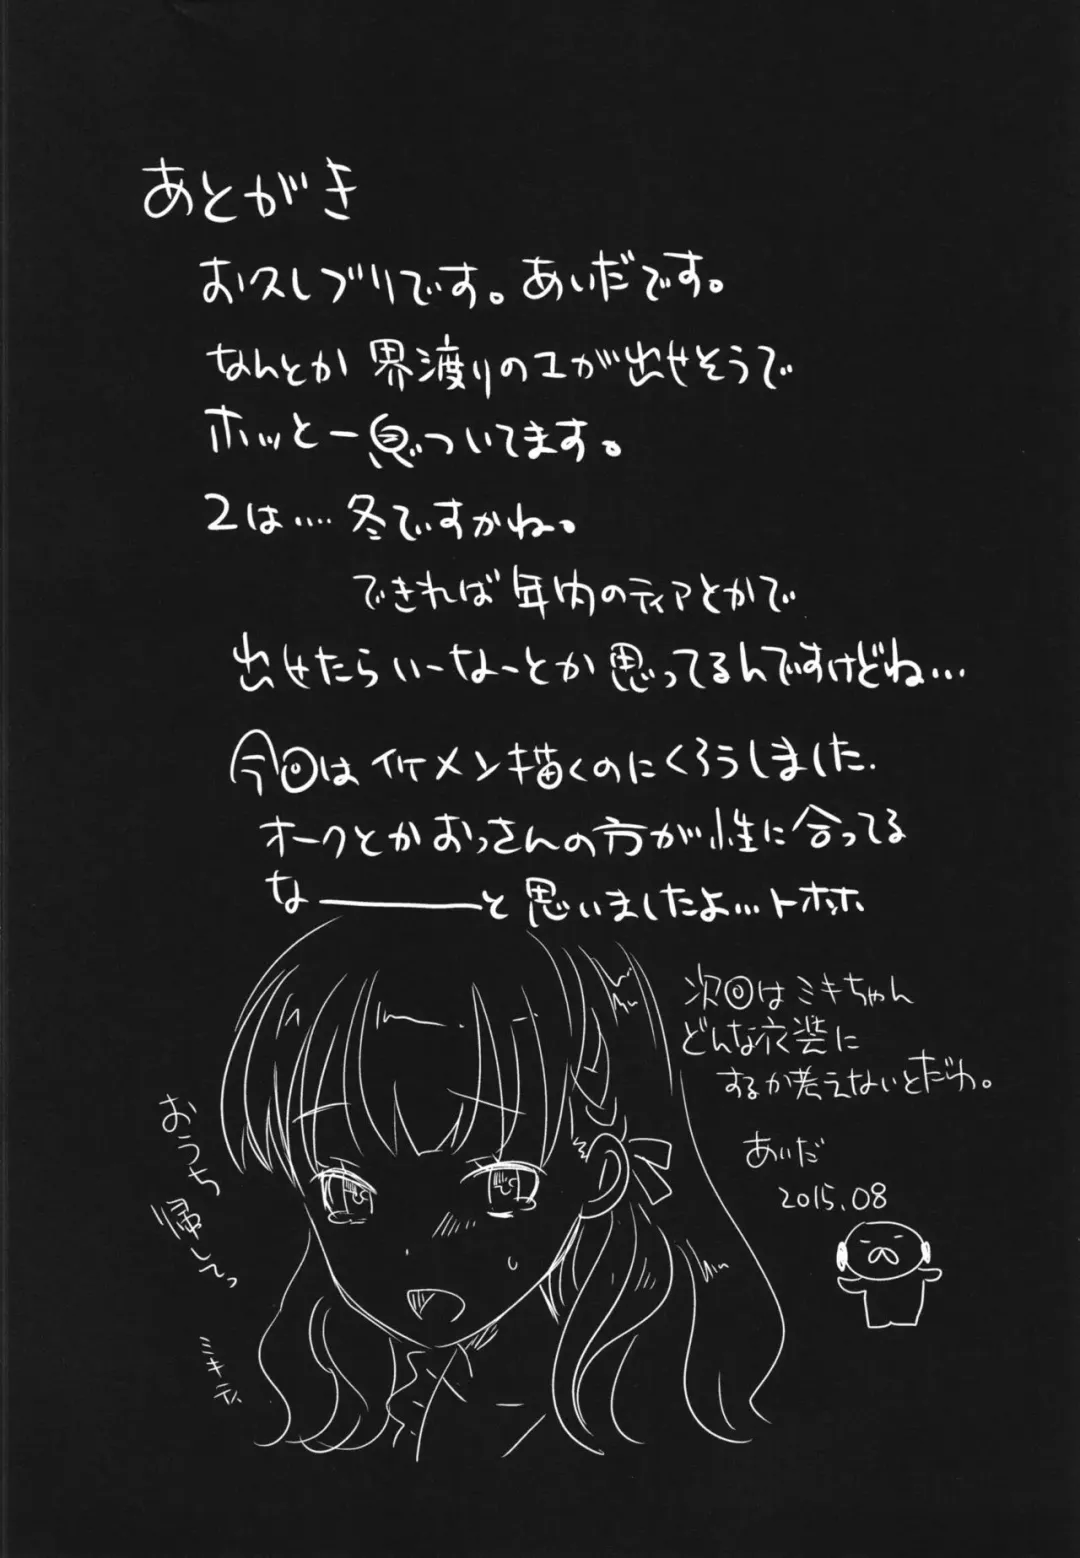 あとがき
お久しブリです。あいだです。
なんとか 界渡りの1が出せそうで
ホッと一息ついてます。
2は…. 冬ですかね。
できれば 年内のティアとかで
出せたらいーなーとか思ってるんですけどね…
今回はイケメン描くのにくろうしました.
オークとかおっさんの方が性に合ってる
な――――と思いましたよ…トホホ
次回はミキちゃん
どんな衣装に
するか考えないとだわ。
あいだ
2015.08
おうち
帰してっ
ミキティ